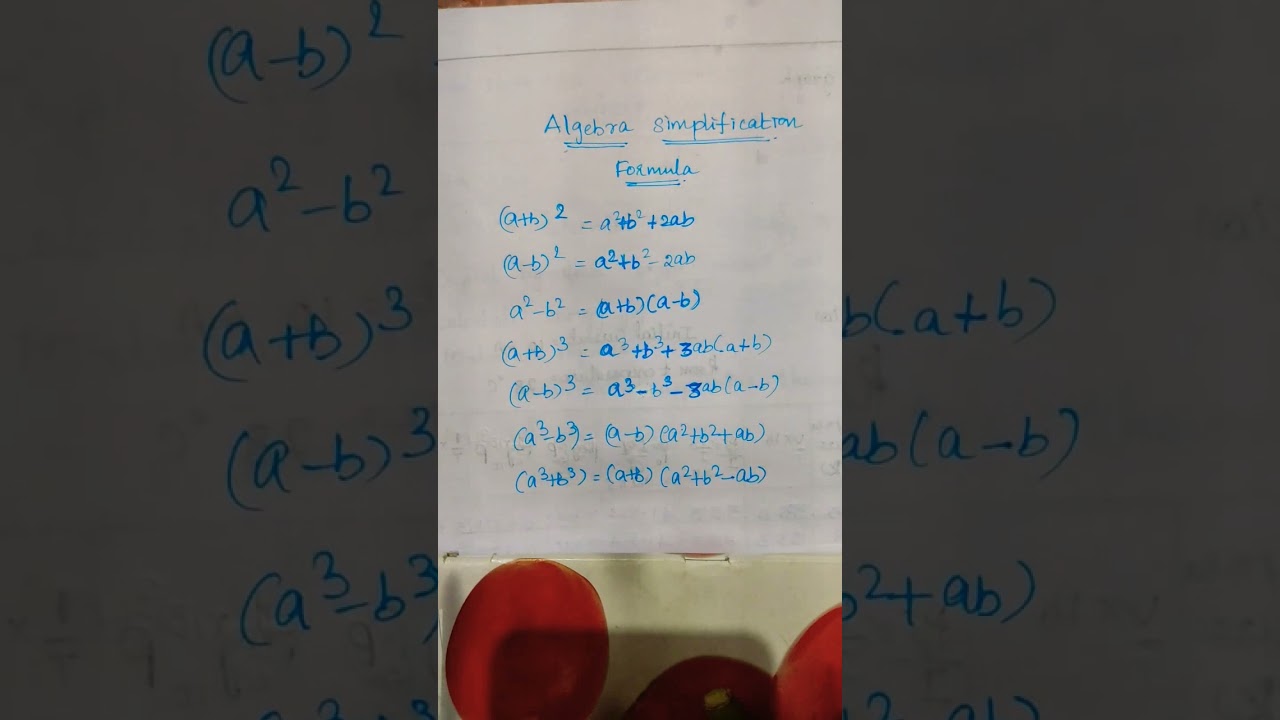 Algebra simplification
Formula
(a+b)² = a²+b²+2ab
(a-b)² = a²+b²-2ab
a²-b² = (a+b)(a-b)
(a+b)³ = a³+b³+3ab(a+b)
(a-b)³ = a³-b³-3ab(a-b)
(a³-b³) = (a-b)(a²+b²+ab)
(a³+b³) = (a+b)(a²+b²-ab)